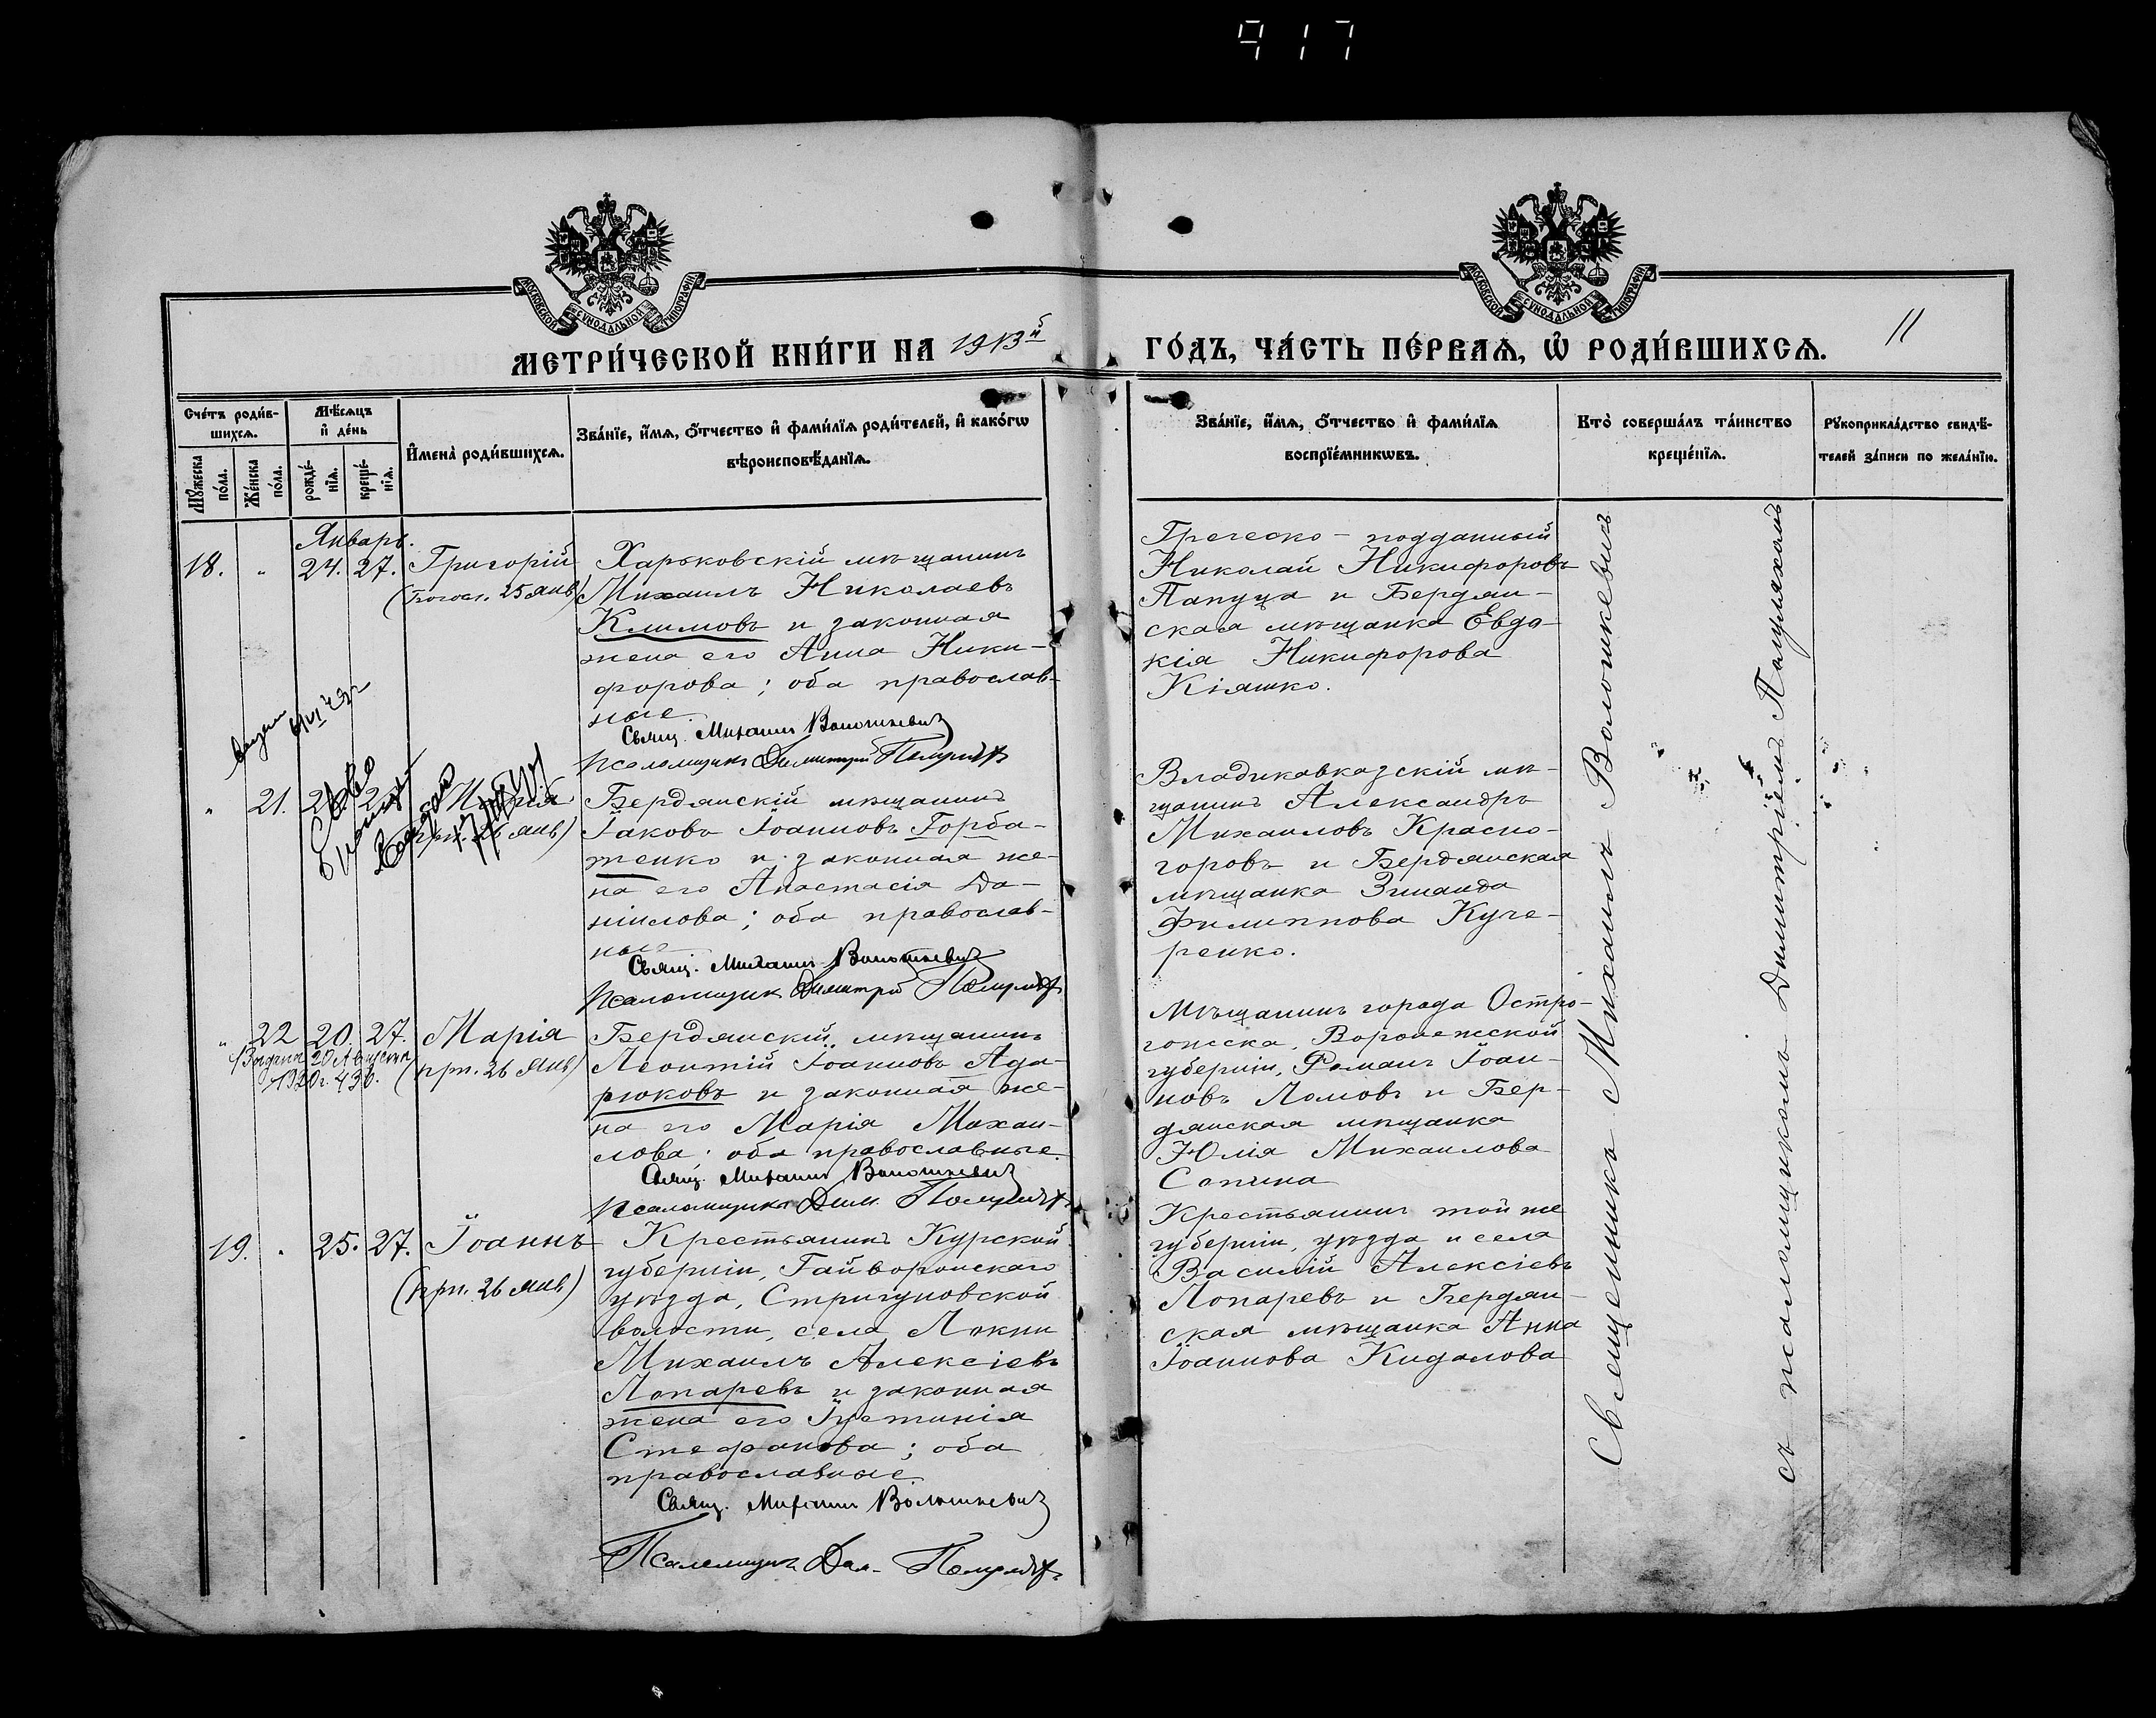 917
МОСКОВСКОЙ СУНОДАЛЬНОЙ ТИПОГРАФИ
МОСКОВСКОЙ СУНОДАЛЬНОЙ ТИПОГРАФИ
МЕТРИ́ЧЕСКОЙ КНИ́ГИ НА 1913й
ГО́ДЪ, ЧА́СТЬ ПЕ́РВАѦ, Ѽ РОДИ́ВШИХСѦ.
11
Сче́тъ роди́в-
шихсѧ.
Мѣ́сѧцъ
и҆ де́нь
Мꙋ́жеска
по́ла.
Же́нска
по́ла.
рожде́-
нїѧ.
креще́-
нїѧ.
И҆мена̀ роди́вшихсѧ.
Зва́нїе, и҆́мѧ, ѻ҆́тчество и҆ фами́лїѧ роди́телей, и҆ како́гѡ
вѣроисповѣ́данїѧ.
Зва́нїе, и҆́мѧ, ѻ҆́тчество и҆ фами́лїѧ
воспрїе́мникѡвъ.
Кто̀ соверша́лъ та́инство
креще́нїѧ.
Рꙋкоприкла́дство свидѣ́-
телей за́писи по жела́нїю.
Январь.
18. " 24. 27. Григорій
25 янв)
Харьковскій мѣщанинъ
Михаилъ Николаевъ
Климовъ и законная
жена его Анна Ники-
форова; оба православ-
ные.
Свящ. Михаилъ Волошкевич
Псаломщикъ Димитрій
Греческо-подданный
Николай Никифоровъ
Папуца и Бердян-
ская мѣщанка Евдо-
кія Никифорова
Кіяшко.
" 21.
26 янв)
Бердянскій мѣщанинъ
Іаковъ Іоанновъ Горба-
тенко и законная же-
на его Анастасія Да-
ніилова; оба православ-
ные
Свящ. Михаилъ Волошкевич
Псаломщик Димитрій
Владикавказскій мѣ-
щанинъ Александръ
Михаиловъ Красно-
горовъ и Бердянская
мѣщанка Зинаида
Филиппова Куче-
ренко.
" 22 20. 27. Марія
(прп. 26 янв)
Выдана 20 Августа
Бердянскій мѣщанинъ
Леонтій Іоанновъ Ада-
рюковъ и законная же-
на его Марія Михаи-
лова; оба православные.
Свящ. Михаилъ Волошкевич
Псаломщикъ Дим.
Мѣщанинъ города Остро-
гожска, Воронежской
губерніи, Романъ Іоан-
новъ Ломовъ и Бер-
дянская мѣщанка
Юлія Михаилова
Сапина
19. " 25. 27. Іоаннъ
(прп. 26 янв)
Крестьянинъ Курской
губерніи, Гайворонскаго
уѣзда, Стригуновской
волости, села Локни
Михаилъ Алексіевъ
Лопаревъ и законная
жена его Іустинія
Стефанова; оба
православные
Свящ. Михаилъ Волошкевич
Псаломщикъ Дим.
Крестьянинъ той же
губерніи, уѣзда и села
Василій Алексіевъ
Лопаревъ и Бердян-
ская мѣщанка Анна
Іоаннова Кидалова
Священникъ Михаилъ Волошкевичъ
съ псаломщикомъ Димитріемъ